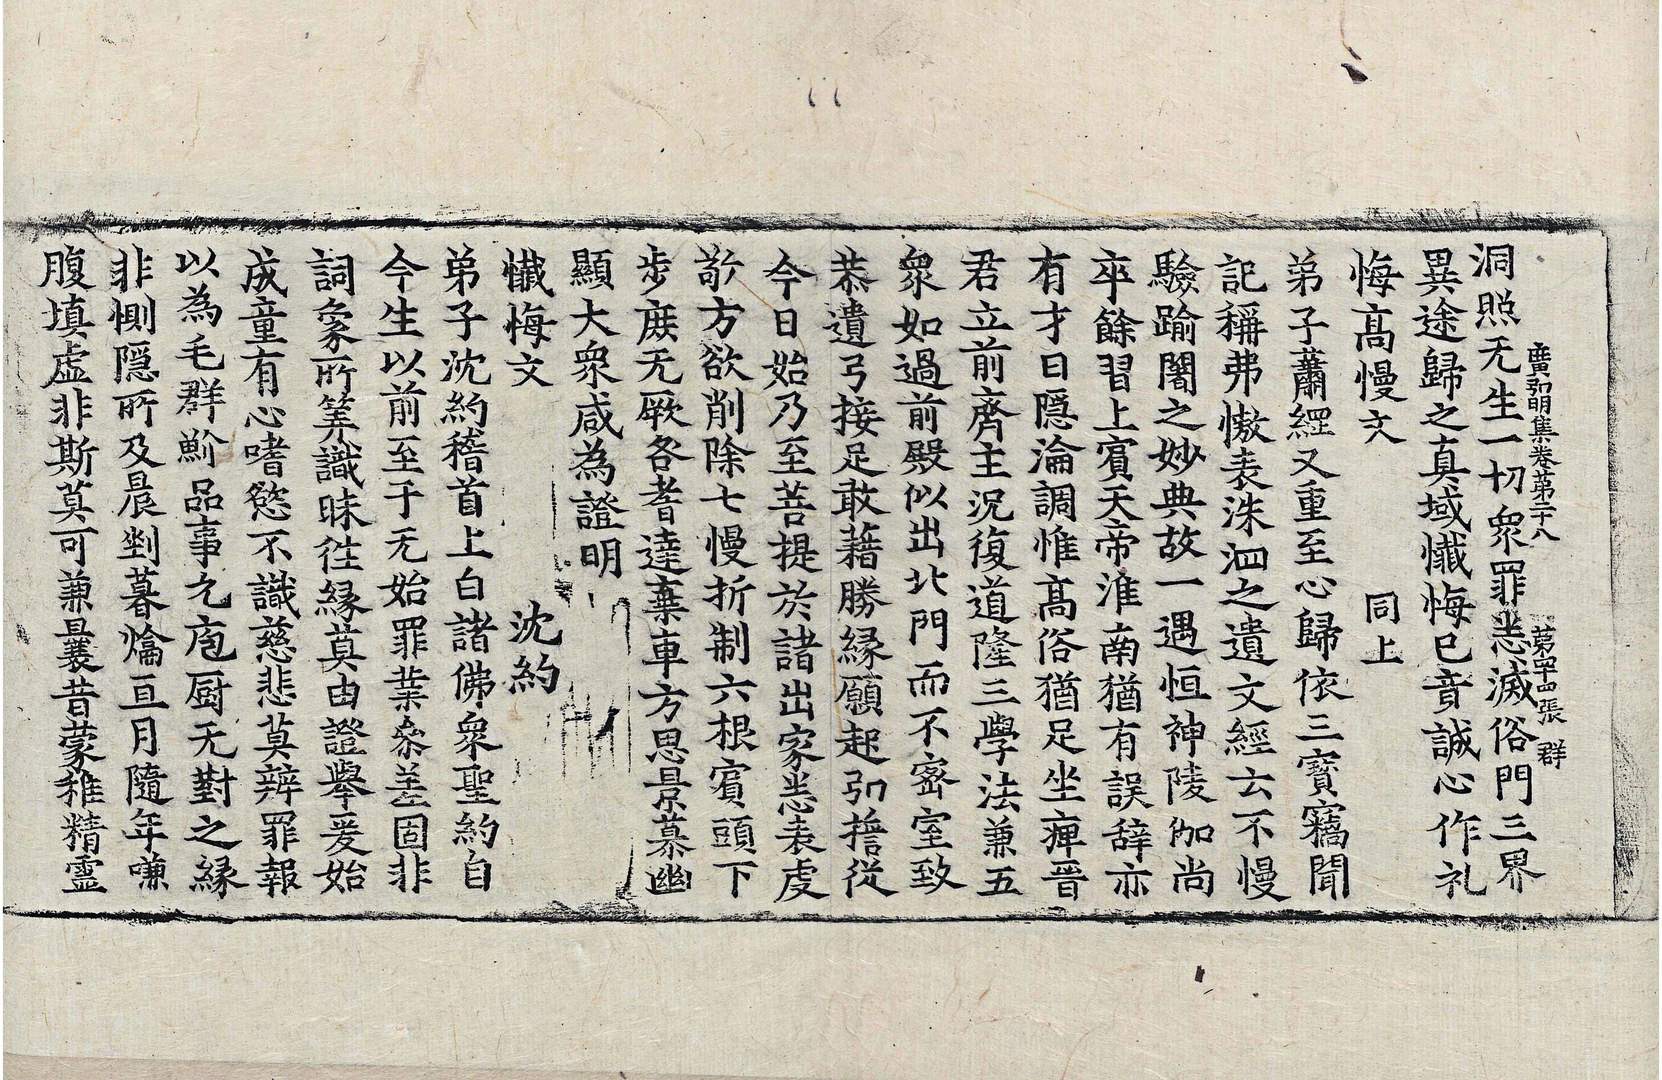 洞照无生一切衆罪悉滅俗門三界
廣弘明集卷第二十八　第四十四張　群
異途歸之真域懺悔已竟誠心作礼
悔髙慢文　同上
弟子蕭綱又重至心歸依三寶竊聞
記稱弗慠表洙泗之遺文經云不慢
驗踰闍之妙典故一遇恒神陵伽尚
卒餘習上賔天帝淮南猶有誤辞亦
有才曰隱淪調惟髙俗猶足坐痺晉
君立前齊主況復道隆三學法兼五
衆如過前殿似出北門而不密室致
恭遺弓接足敢藉勝縁願起弘擔従
今日始乃至菩提於諸出家悉表虔
敬方欲削除七慢折制六根賔頭下
步庶无厥咎耆達棄車方思景慕幽
顯大衆咸為證明
懺悔文　沈約
弟子沈約稽首上白諸佛衆聖約自
今生以前至于无始罪業叅差固非
詞象所筭識昧徃縁莫由證舉爰始
成童有心嗜慾不識慈悲莫辨罪報
以為毛群魪品事允庖厨无對之縁
非惻隱所及晨剉暮爚亘月隨年嗛
腹填虛非斯莫可兼曩昔蒙稚精靈